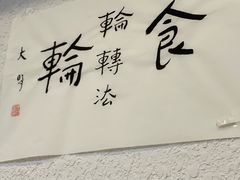 食
輪轉法
輪
大